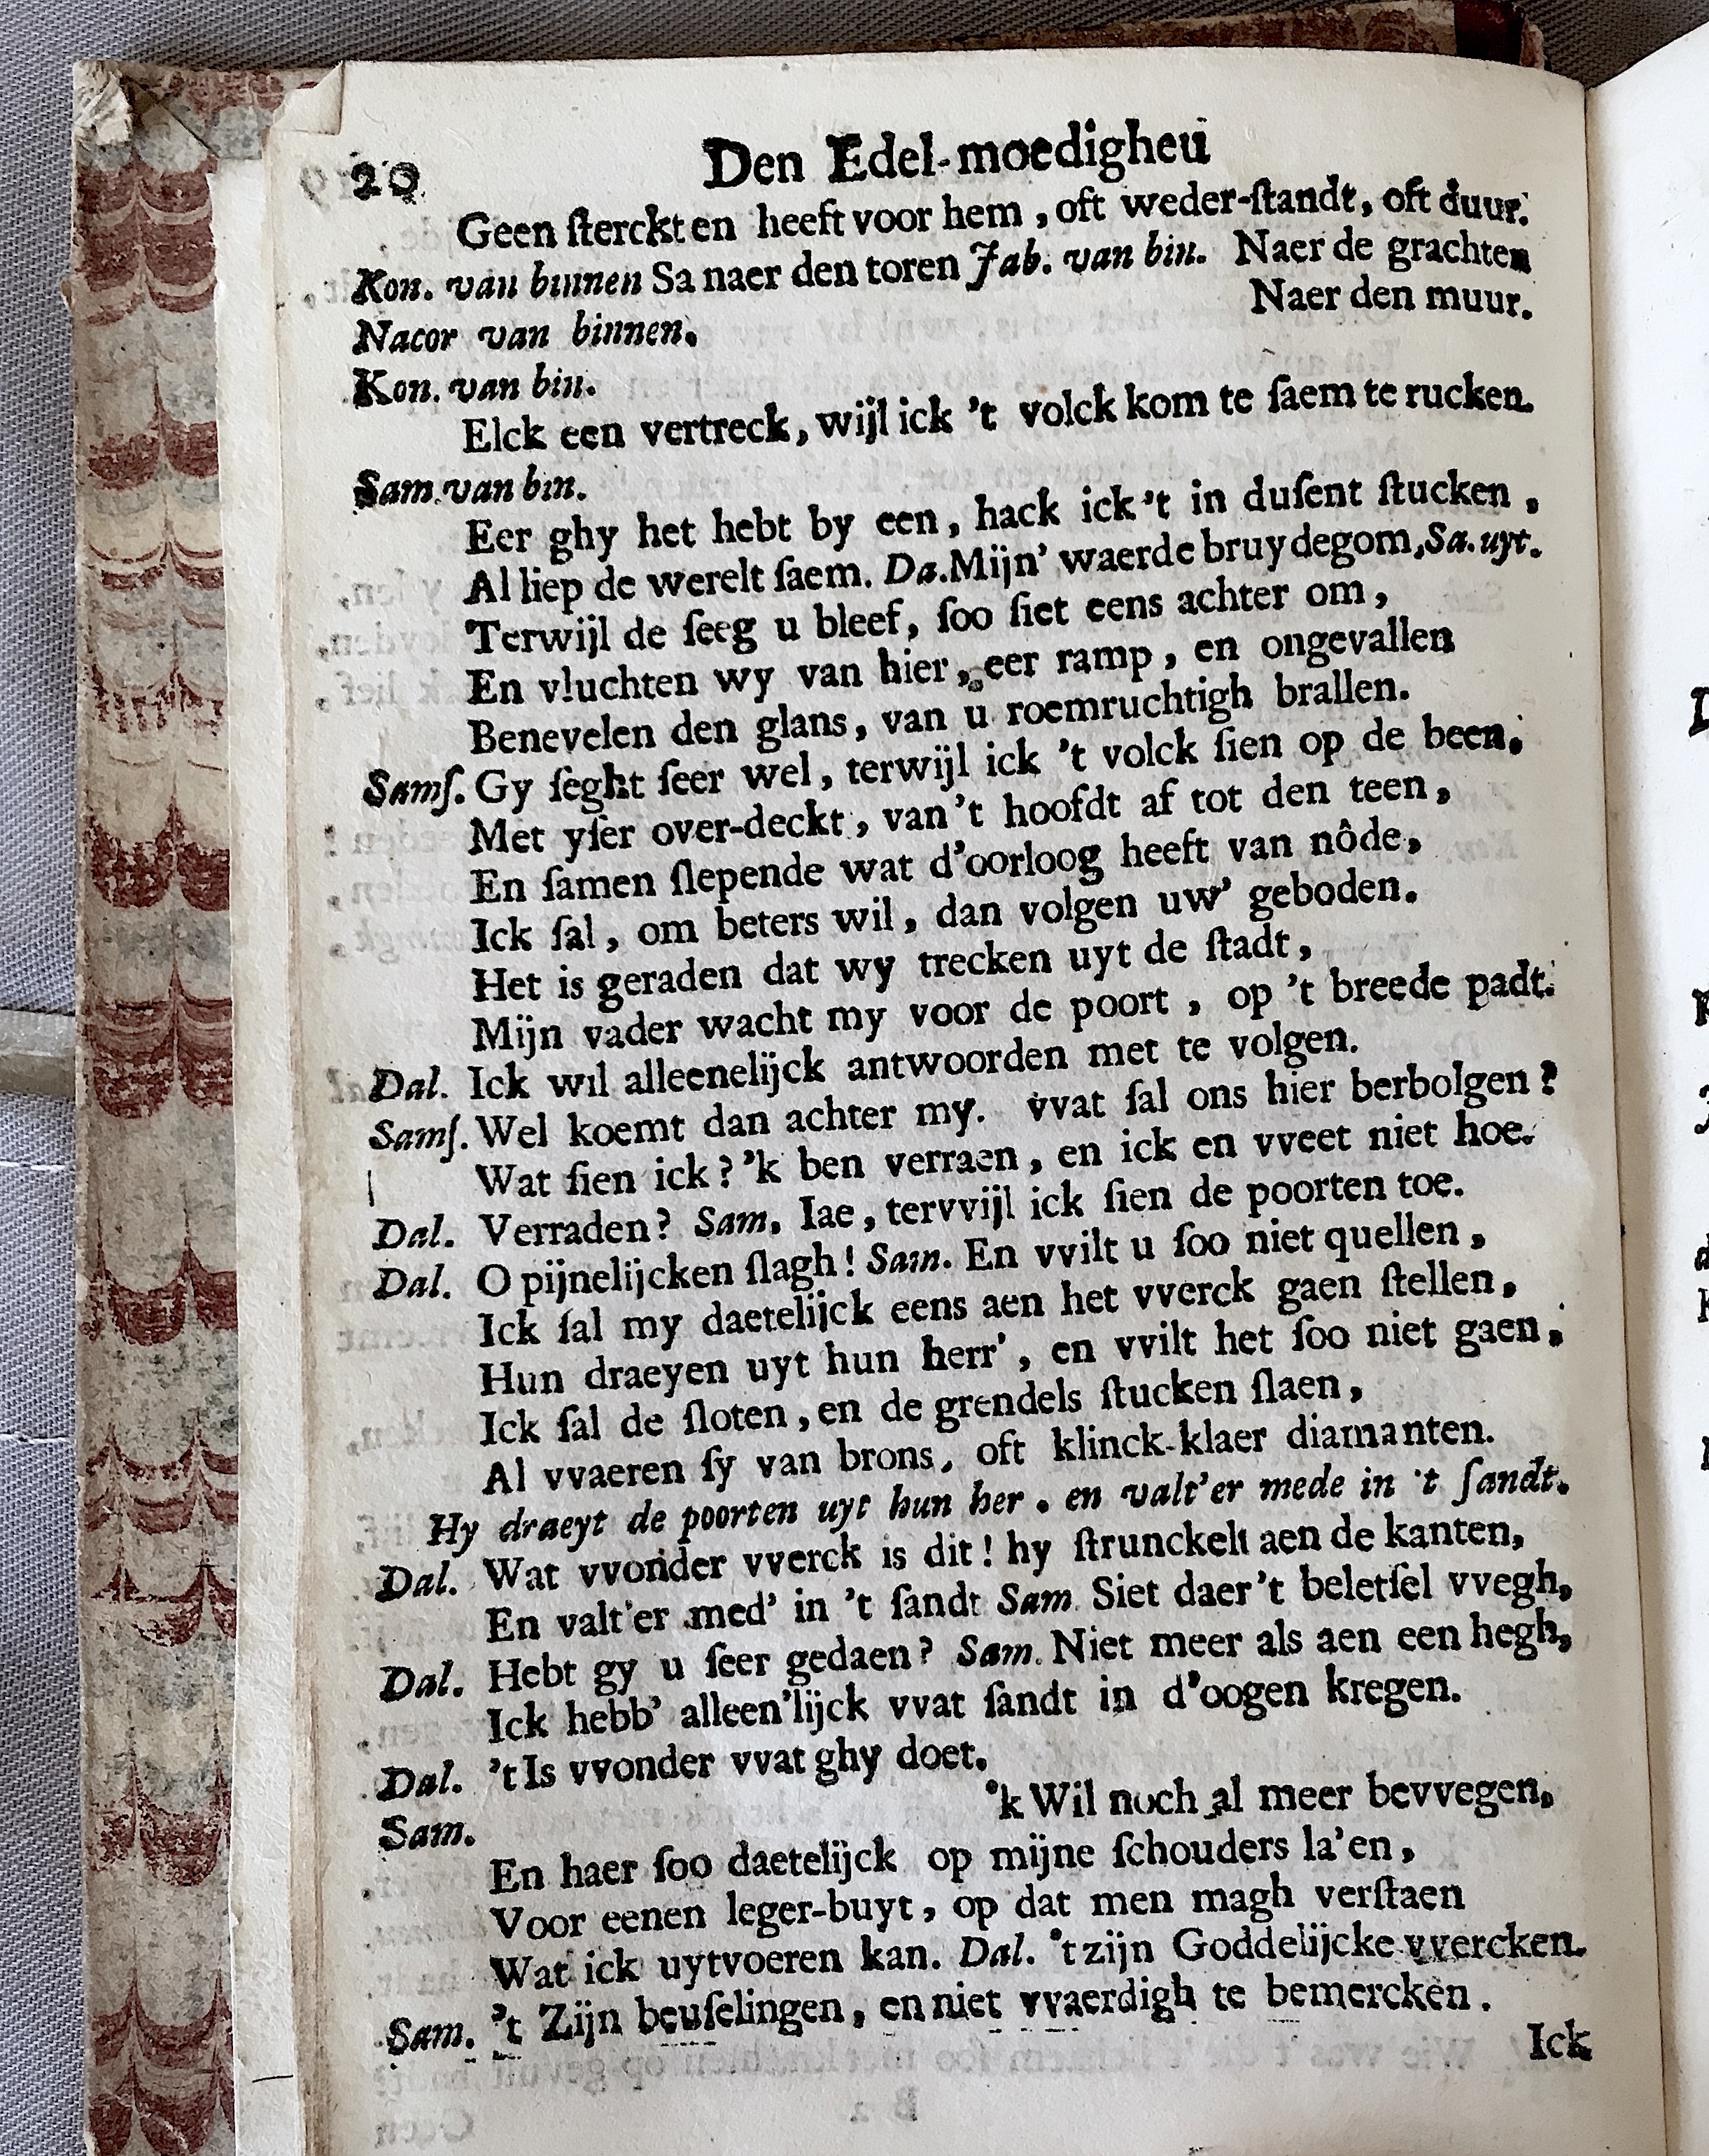 20 Den Edel-moedigheu
Geen ſterckten heeft voor hem, oft weder-ſtandt, oft duur.
Kon. van binnen Sa naer den toren Jab. van bin. Naer de grachten
Naer den muur.
Nacor van binnen.
Kon. van bin.
Elck een vertreck, wijl ick 't volck kom te ſaem te rucken.
Sam. van bin.
Eer ghy het hebt by een, hack ick 't in duſent ſtucken,
Al liep de werelt ſaem. Da. Mijn' waerde bruydegom, Sa. uyt.
Terwijl de ſeeg u bleef, ſoo ſiet eens achter om,
En vluchten wy van hier, eer ramp, en ongevallen
Benevelen den glans, van u roemruchtigh brallen.
Samſ. Gy ſeght ſeer wel, terwijl ick 't volck ſien op de been,
Met yſer over-deckt, van 't hoofdt af tot den teen,
En ſamen ſlepende wat d'oorloog heeft van nôde,
Ick ſal, om beters wil, dan volgen uw' geboden.
Het is geraden dat wy trecken uyt de ſtadt,
Mijn vader wacht my voor de poort, op 't breede padt.
Dal. Ick wil alleenelijck antwoorden met te volgen.
Samſ. Wel koemt dan achter my. vvat ſal ons hier berbolgen?
Wat ſien ick? 'k ben verraen, en ick en vveet niet hoe.
Dal. Verraden? Sam. Iae, tervvijl ick ſien de poorten toe.
Dal. O pijnelijcken ſlagh! Sam. En vvilt u ſoo niet quellen,
Ick ſal my daetelijck eens aen het vverck gaen ſtellen,
Hun draeyen uyt hun herr', en vvilt het ſoo niet gaen,
Ick ſal de ſloten, en de grendels ſtucken ſlaen,
Al vvaeren ſy van brons, oft klinck-klaer diamanten.
Hy draeyt de poorten uyt hun her. en valt'er mede in 't ſandt.
Dal. Wat vvonder vverck is dit! hy ſtrunckelt aen de kanten,
En valt'er med' in 't ſandt Sam. Siet daer 't beletſel vvegh,
Dal. Hebt gy u ſeer gedaen? Sam. Niet meer als aen een hegh,
Ick hebb' alleen'lijck vvat ſandt in d'oogen kregen.
Dal. 't Is vvonder vvat ghy doet.
'k Wil noch al meer bevvegen,
Sam.
En haer ſoo daetelijck op mijne ſchouders la'en,
Voor eenen leger-buyt, op dat men magh verſtaen
Wat ick uytvoeren kan. Dal. 't zijn Goddelijcke vvercken.
Sam. 't Zijn beuſelingen, en niet vvaerdigh te bemercken.
Ick